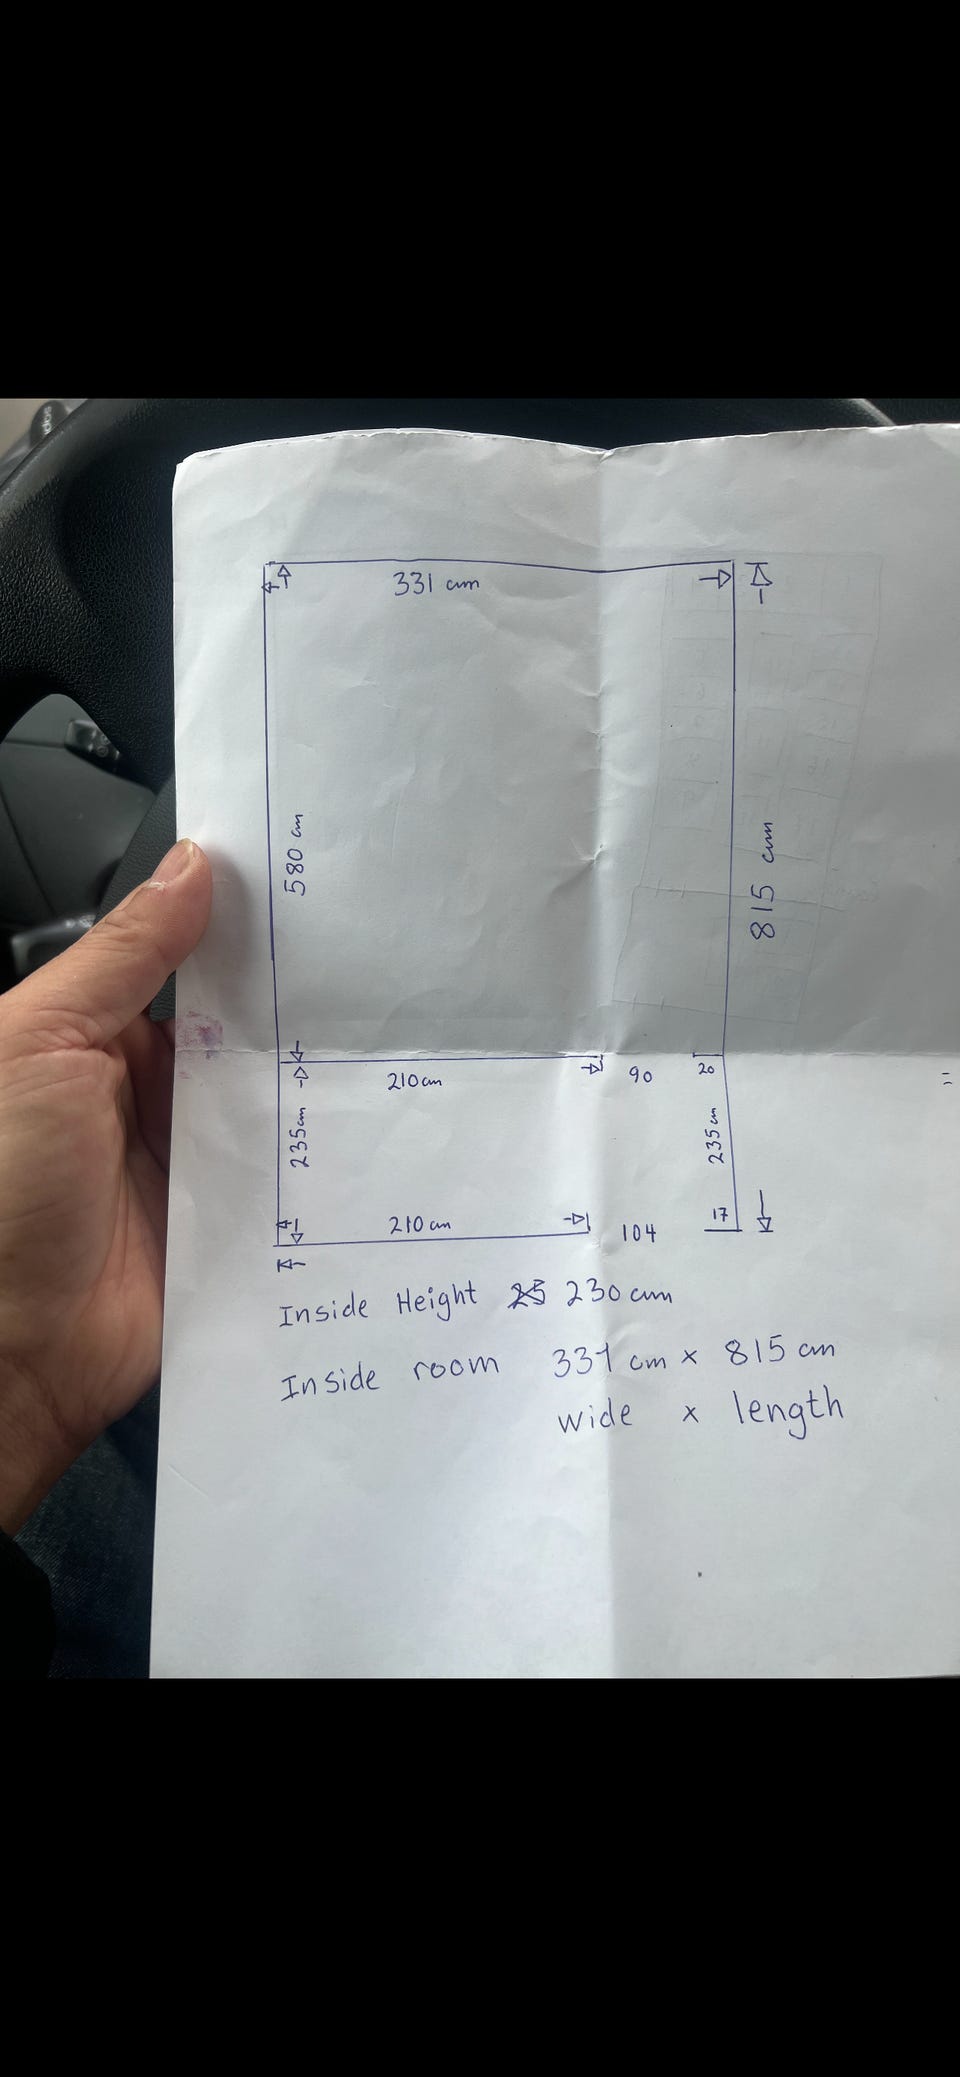 331 cm
580 cm
815 cm
210 cm
90
20
235 cm
235 cm
210 cm
104
17
Inside Height 230 cm
Inside room 331 cm x 815 cm
wide x length